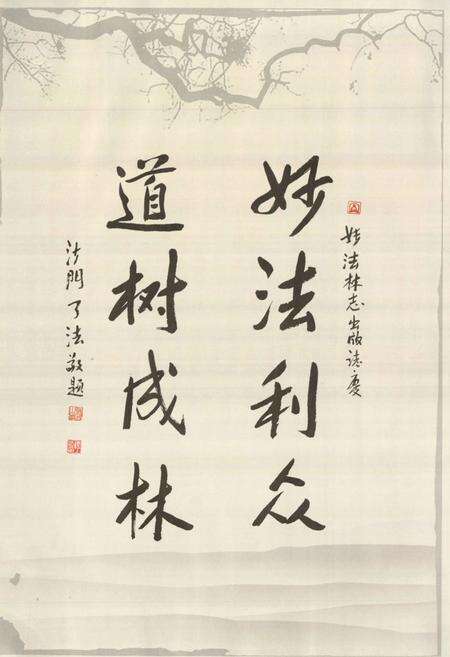 妙法林志出版志庆
妙法利众
道树成林
沙門了法敬題